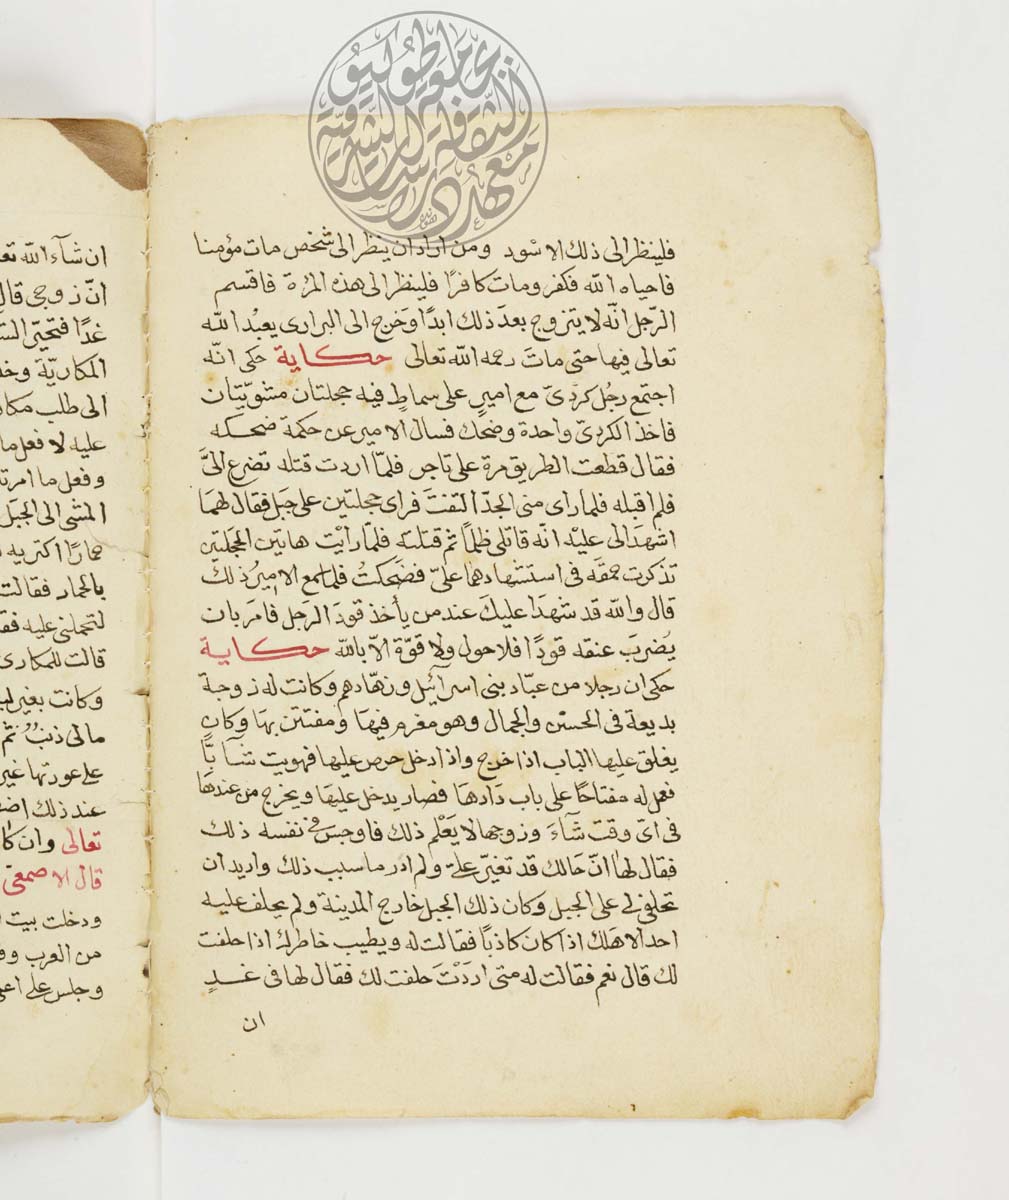 فلينظر الى ذلك الاسْود ومن اراد ان ينظر الى شخص مات مؤمنا
فاحياه الله فكفر ومات كافرًا فلينظر الى هذه المرٔة فاقسم
الرّجل انّه لا يتزوج بعدَ ذلك ابدًا وَخرج الى البرارى يعبُد الله
تعالى فيها حتى ماتَ رحمه الله تعالى حكاية حكى انّه
اجتمع رجُل كردىّ مع اميرٍ على سماطٍ فيه حجلتان مشويّتان
فاخذ الكردىّ واحدة وضحك فسال الامير عن حكمة ضحكه
فقال قطعت الطريق مرة على تاجر فلمّا اردت قتله تضرع الىَّ
فلم اقبله فلما رأى منى الجدّ التفتَ فراى حجلتين على جَبل فقال لهمَا
اشهدَا لى عليْه انّه قاتلى ظلمًا ثم قتلته فلمّا رأيْت هاتين الحجلتين
تذكرت حمقَه فى استشهادهما علىّ فضحكتُ فلما سمع الاميرُ ذلك
قال والله قد شهدَا عليكَ عند من يأخذ قودَ الرجل فامَر بان
يُضربَ عنقه قودًا فلا حول ولا قوّة الّا بالله حكاية
حكى ان رجلا من عبّاد بنى اسرآئيل وزهّادهم وكانت له زوجة
بديعة فى الحسْن والجمال وهو مغرم فيهَا ومفتتن بهَا وكان
يغلق عليها الباب اذا خرج واذا دخل حرص عليها فهويت شآبًّا
فعمل له مفتاحًا على باب دَارهَا فصار يدخل عليهَا ويخرج من عندهَا
فى اىّ وقت شآءَ وزوجها لا يَعْلم ذلك فاوجس فى نفسه ذلك
فقال لهَا انّ حَالك قد تغيّر علىّ ولم ادر ما سبب ذلك واريد ان
تحلفى لى على الجبل وكان ذلك الجبل خارج المدينة ولم يحلف عليه
احد الا هلك اذا كان كاذبًا فقالت له ويطيب خاطرك اذا حلفت
لك قال نعم فقالت له متى اردْتَ حلفت لك فقال لها فى غدٍ
ان
ان شآء الله
انّ زوجى قال
غدًا فتحيّى
المكاريّة
الى طلب
عليه لا فعل ما
وفعل ما
المشى الى الجبَل
حمارًا اكتريه
بالحمار فقالت
لتحملنى عليه
قالت للمكارى
وكانت بغير
مالى ذنبٌ ثم
على عورتها غير
عند ذلك
تعالى وان
قال الاصمعى
ودخلت بيت
من العرب
وجلس على
معهد الثقافة والدراسات الشرقية
جامعة طوكيو